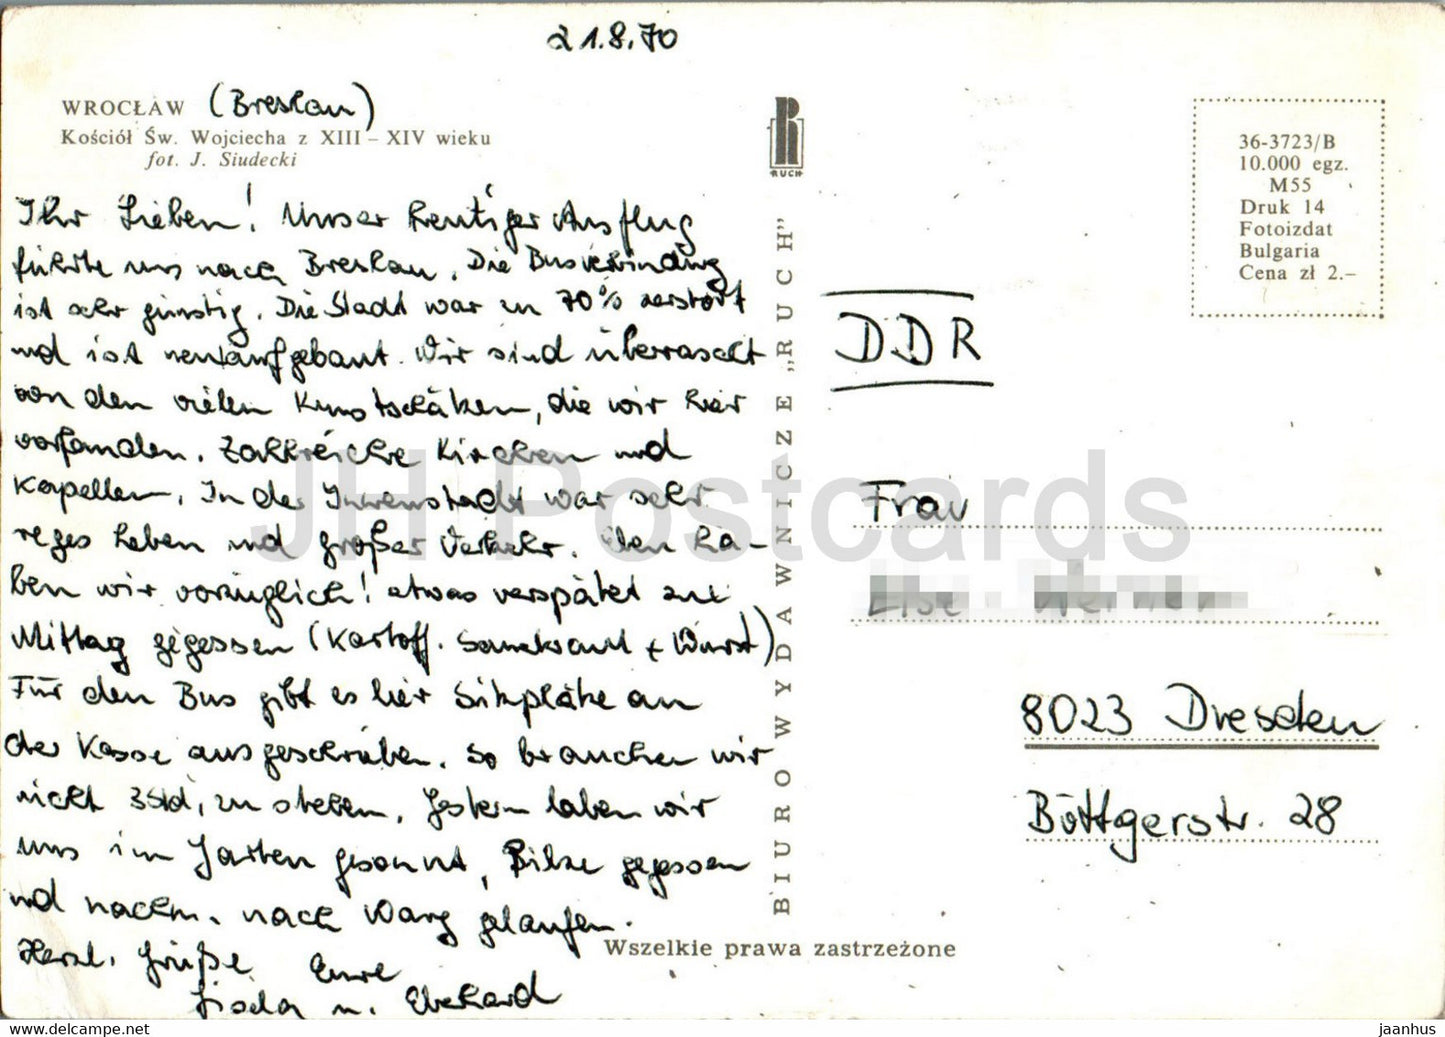 21.8.70
WROCŁAW (Breslau)
Kościół Św. Wojciecha z XIII – XIV wieku
fot. J. Siudecki
Ihr Lieben! Unser heutiger Ausflug
führte uns nach Breslau. Die Busverbindung
ist sehr günstig. Die Stadt war zu 70% zerstört
und ist neu aufgebaut. Wir sind überrascht
von den vielen Kunstschätzen, die wir hier
vorfanden. Zahlreiche Kirchen und
Kapellen. In der Innenstadt war sehr
reges Leben und großer Verkehr. Eben ha-
ben wir vorzüglich! etwas verspätet zu
Mittag gegessen (Kartoff. Sauerkraut + Wurst)
Für den Bus gibt es hier Sitzplätze an
der Kasse ausgeschrieben. So brauchen wir
nicht 3 Std. zu stehen. Gestern haben wir
uns im Garten gesonnt, Pilze gegessen
und nachm. nach Warg gelaufen.
Herzl. Grüße Eure
Gisela u. Eberhard
RUCH
BIURO WYDAWNICZE „RUCH”
36-3723/B
10.000 egz.
M55
Druk 14
Fotoizdat
Bulgaria
Cena zł 2.–
DDR
Frau
Else Werner
8023 Dresden
Böttgerstr. 28
Wszelkie prawa zastrzeżone
JH Postcards
www.delcampe.net
jaanhus